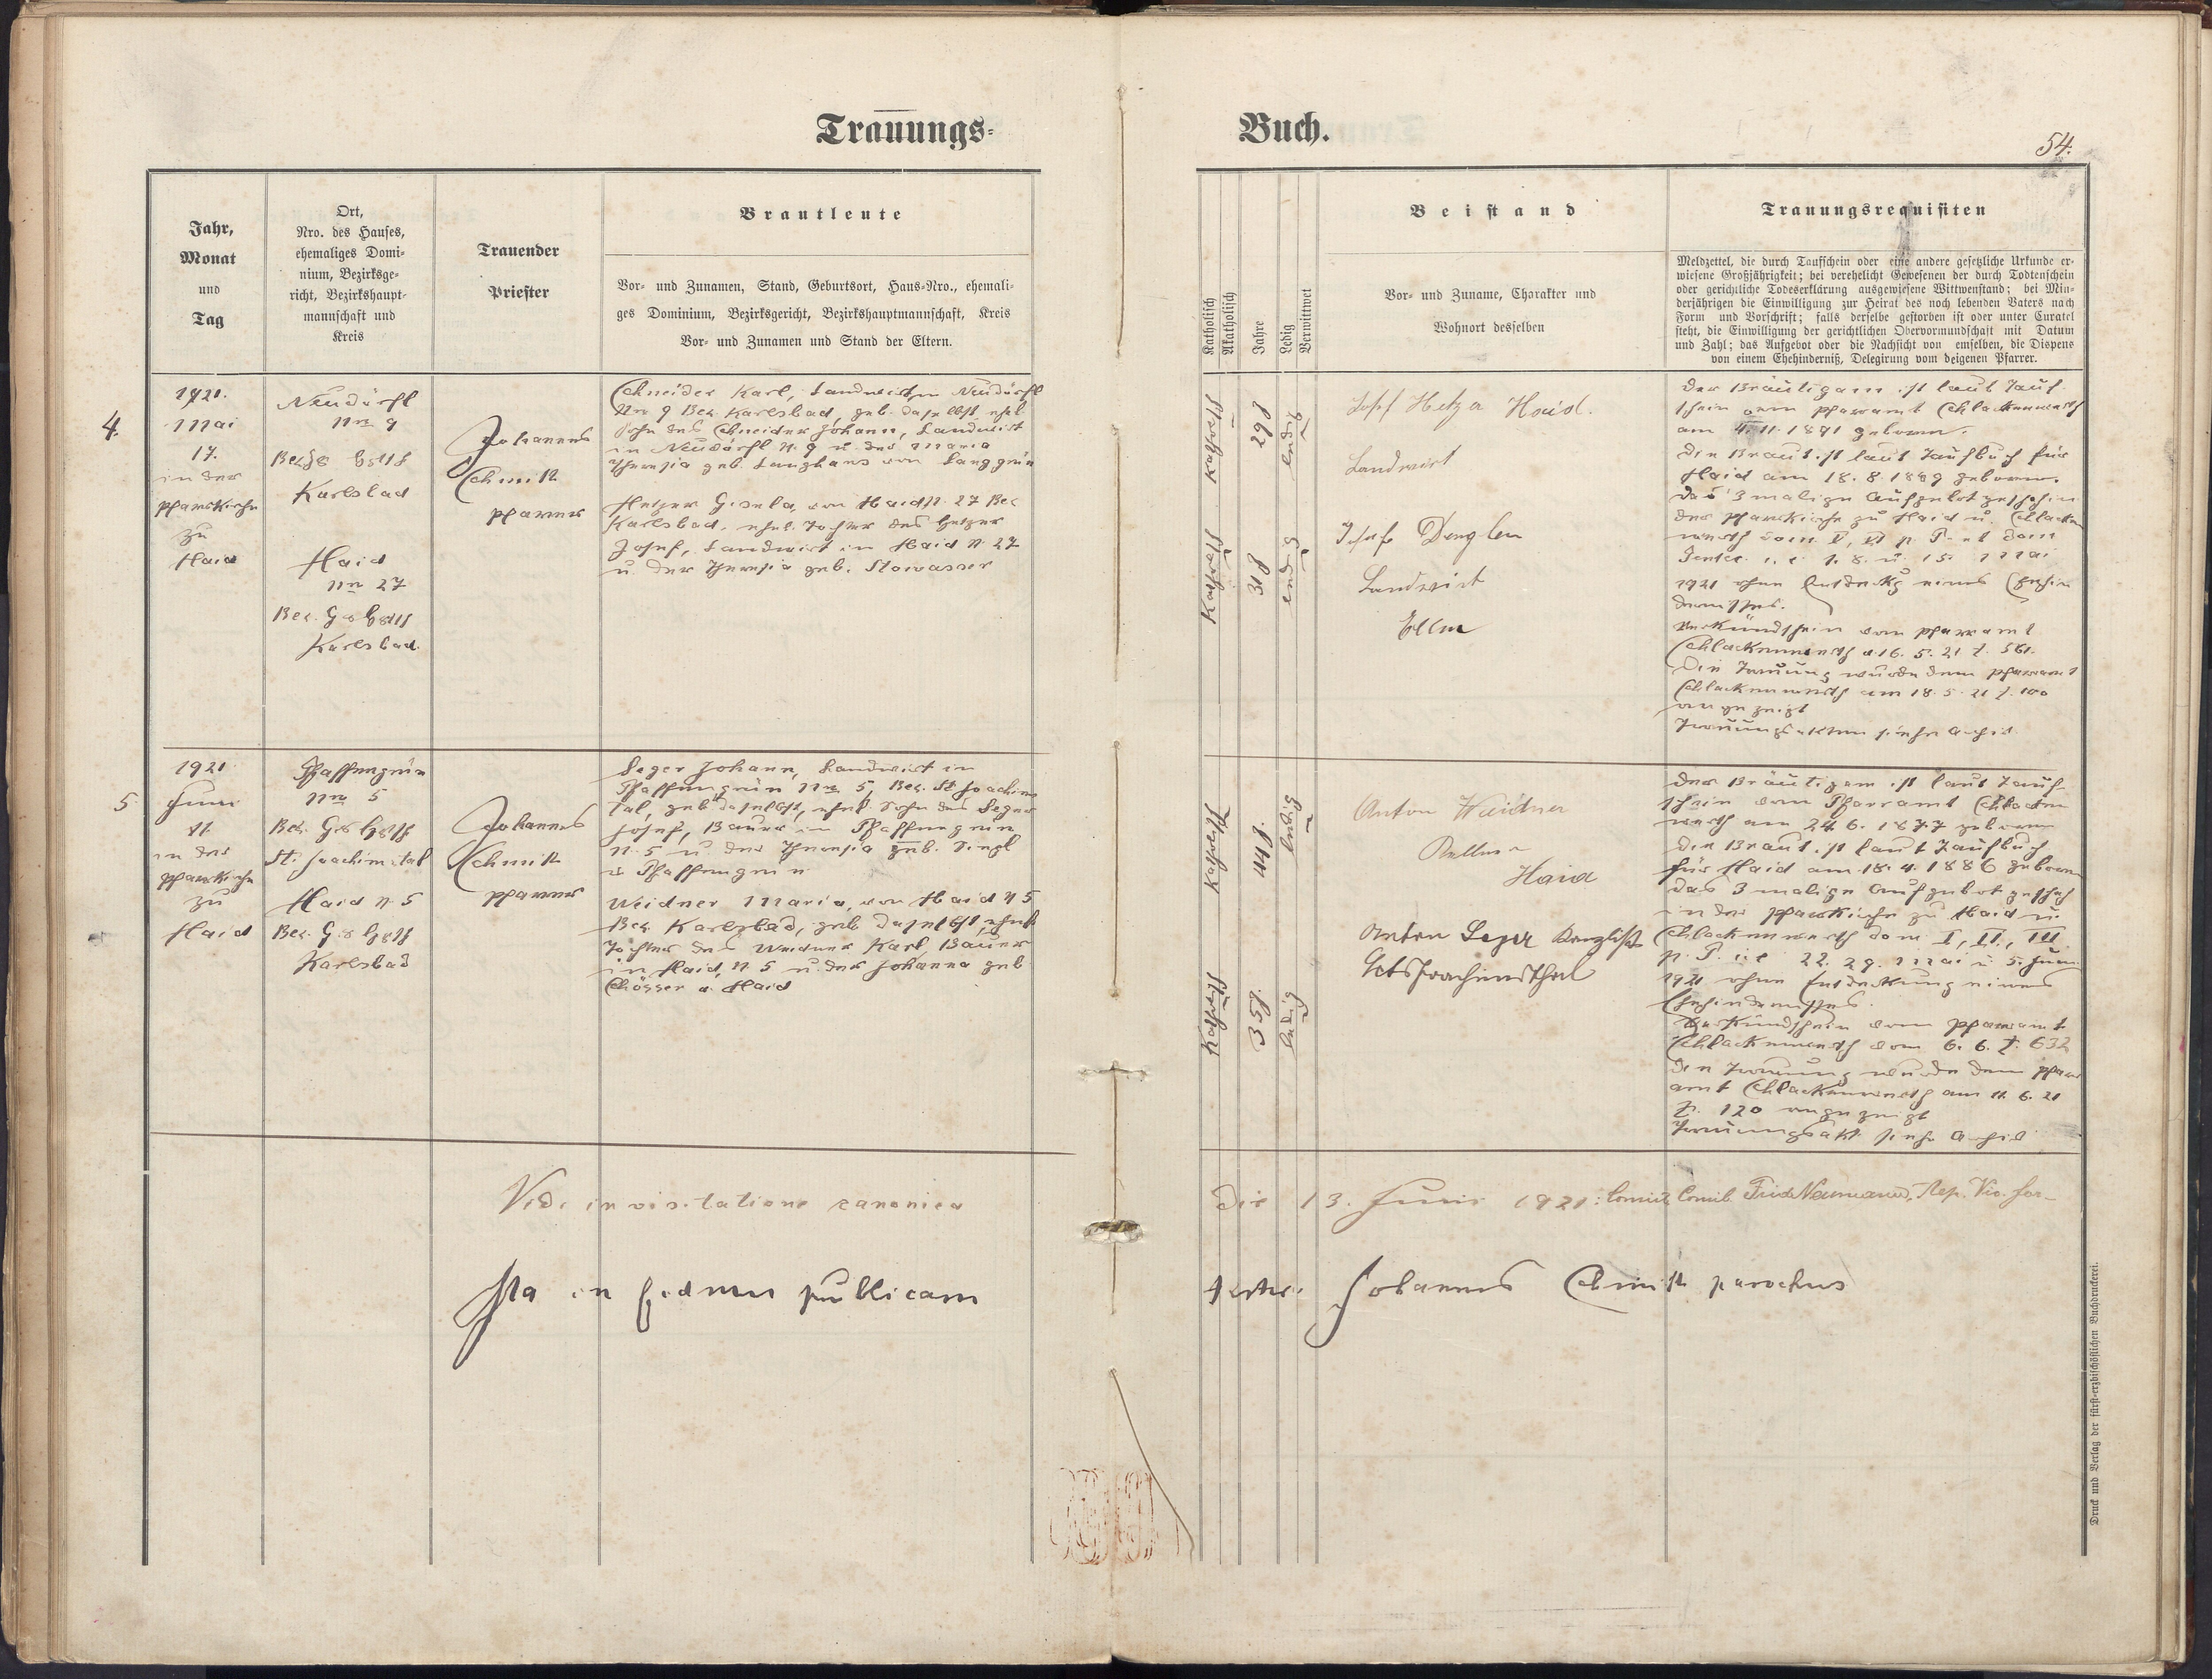 Trauungs-
Buch.
54.
Jahr,
Monat
und
Tag
Ort,
Nro. des Hauses,
ehemaliges Domi-
nium, Bezirksge-
richt, Bezirkshaupt-
mannschaft und
Kreis
Trauender
Priester
Brautleute
Vor- und Zunamen, Stand, Geburtsort, Haus-Nro., ehemali-
ges Dominium, Bezirksgericht, Bezirkshauptmannschaft, Kreis
Vor- und Zunamen und Stand der Eltern.
Katholisch
Akatholisch
Jahre
Ledig
Verwittwet
Beistand
Vor- und Zuname, Charakter und
Wohnort desselben
Trauungsrequisiten
Meldzettel, die durch Taufschein oder eine andere gesetzliche Urkunde er-
wiesene Großjährigkeit; bei verehelicht Gewesenen der durch Todtenschein
oder gerichtliche Todeserklärung ausgewiesene Wittwenstand; bei Min-
derjährigen die Einwilligung zur Heirat des noch lebenden Vaters nach
Form und Vorschrift; falls derselbe gestorben ist oder unter Curatel
steht, die Einwilligung der gerichtlichen Obervormundschaft mit Datum
und Zahl; das Aufgebot oder die Nachsicht von emselben, die Dispens
von einem Ehehinderniß, Delegirung vom deigenen Pfarrer.
4.
1921.
Mai
17.
in der
Pfarrkirche
zu
Haid
Neudörfl
Nro 9
Karlsbad
Haid
Nro 27
Karlsbad
Johannes
Schmidt
Pfarrer
Schneider Karl, Landwirt in Neudörfl
Nro 9 Bez. Karlsbad, geb. daselbst, ehel.
Sohn des Schneider Johann, Landwirt
in Neudörfl N. 9 u. der Maria
Theresia geb. Langhans von Langgrün
Hetzer Gisela, von Haid N. 27 Bez
Karlsbad, ehel. Tochter des Hetzer
Josef, Landwirt in Haid N. 27
u. der Theresia geb. Stowasser
Katholisch
29 J
ledig
Katholisch
31 J
ledig
Josef Hetzer Haid.
Landwirt
Josef Dengler
Landwirt
Ellm
Der Bräutigam ist laut Tauf-
schein vom Pfarramt Schlackenwerth
am 4. 11. 1891 geboren.
Die Braut ist laut Taufbuch für
Haid am 18. 8. 1889 geboren.
Das 3 malige Aufgebot geschah in
der Pfarrkirche zu Haid u. Schlacken
werth
1. 8. u. 15. Mai
1921 ohne Entdeckg eines Ehehin
dernisses.
Verkündschein vom Pfarramt
Schlackenwerth d. 16. 5. 21 Z. 561.
Die Trauung wurde dem Pfarramt
Schlackenwerth am 18. 5. 21 Z. 100
angezeigt
Trauungsakten siehe Archiv.
5
1921
Juni
11.
in der
Pfarrkirche
zu
Haid
Pfaffengrün
Nro 5
St. Joachimstal
Haid N. 5
Karlsbad
Johannes
Schmidt
Pfarrer
Seger Johann, Landwirt in
Pfaffengrün Nro 5, Bez. St. Joachims
tal, geb. daselbst, ehel. Sohn des Seger
Josef, Bauer in Pfaffengrün
N. 5 u. der Theresia geb.
v. Pfaffengrün
Weidner Maria, von Haid N 5
Bez. Karlsbad, geb. daselbst, ehel.
Tochter des Weidner Karl, Bauer
in Haid, N. 5 u. der Johanna geb.
a. Haid
Katholisch
44 J.
ledig
Katholisch
35 J.
ledig
Anton Weidner
Haid
Anton Seger Kanzlist
Joachimsthal
Der Bräutigam ist laut Tauf-
schein vom Pfarramt Schlacken
werth am 24. 6. 1877 geboren
Die Braut ist laut Taufbuch
für Haid am 18. 4. 1886 geboren
Das 3 malige Aufgebot geschah
in der Pfarrkirche zu Haid u.
Schlackenwerth dom I, II, III
p. P. i. e. 22. 29. Mai u. 5. Juni
1921 ohne Entdeckung eines
Ehehindernisses.
Verkündschein vom Pfarramt
Schlackenwerth vom 6. 6. Z. 632
Die Trauung wurde dem Pfarr
amt Schlackenwerth am 11. 6. 21
Z. 120 angezeigt
Trauungsakt siehe Archiv
Vidi in visitatione canonica
die 13. Junii 1921: Neumann, Vic. for.
Ita in fidem publicam
testor. Johannes Schmidt parochus
Druck und Verlag der fürst-erzbischöflichen Buchdruckerei.